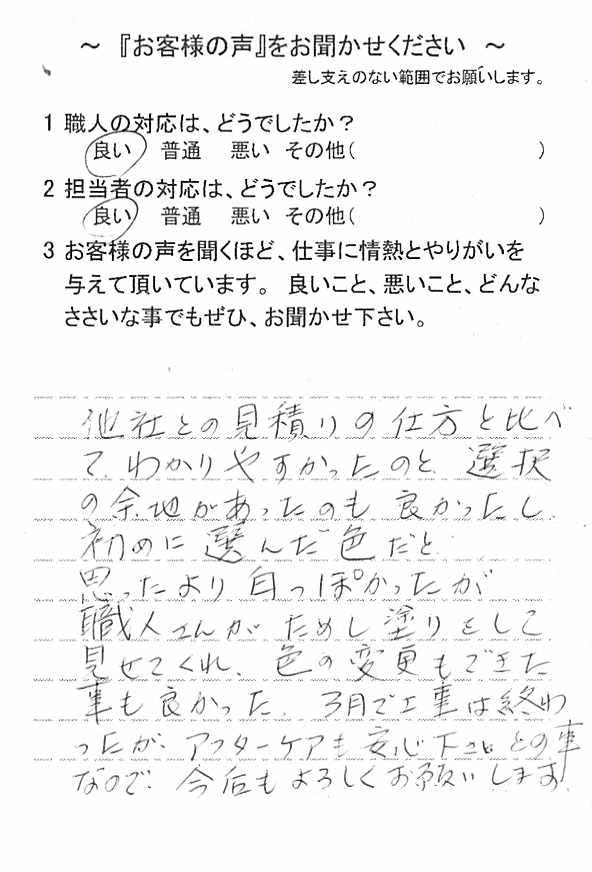 ～ 『お客様の声』をお聞かせください ～
差し支えのない範囲でお願いします。
1 職人の対応は、どうでしたか？
良い 普通 悪い その他( )
2 担当者の対応は、どうでしたか？
良い 普通 悪い その他( )
3 お客様の声を聞くほど、仕事に情熱とやりがいを
与えて頂いています。 良いこと、悪いこと、どんな
ささいな事でもぜひ、お聞かせ下さい。
他社との見積りの仕方と比べ
て、わかりやすかったのと、選択
の余地があったのも良かったし、
初めに選んだ色だと
思ったより白っぽかったが
職人さんがためし塗りをして
見せてくれ、色の変更もできた
事も良かった。3月で工事は終わ
ったが、アフターケアも安心下さいとの事
なので、今后もよろしくお願いします